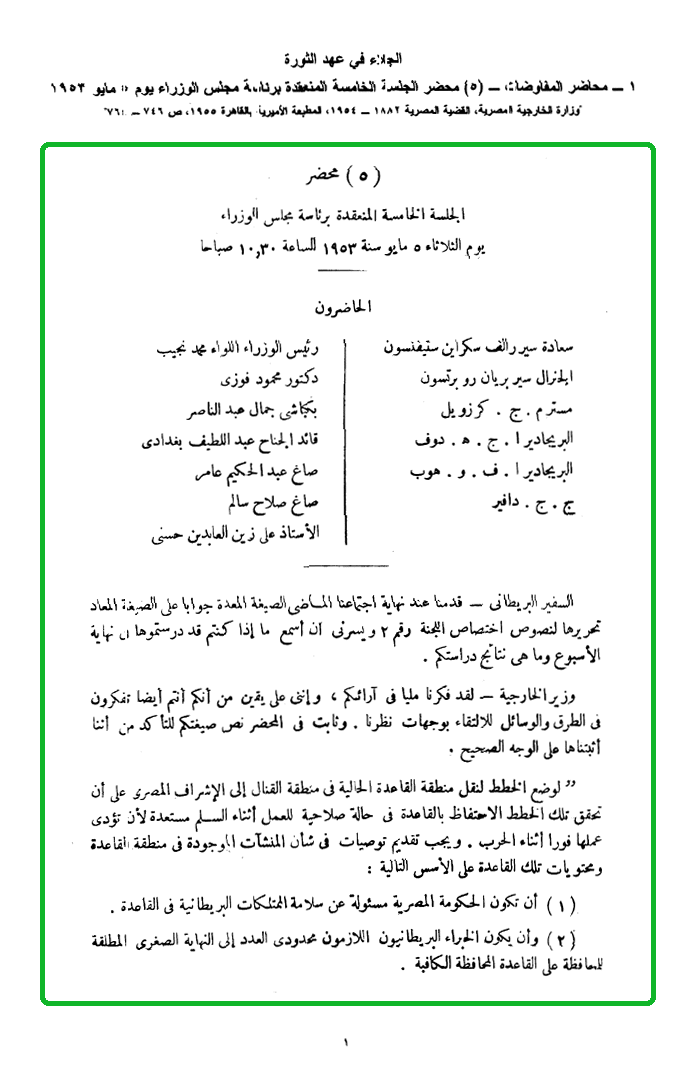 الجلاء في عهد الثورة
١ ــ محاضر المفاوضات، ــ (٥) محضر الجلسة الخامسة المنعقدة برئاسة مجلس الوزراء يوم ٥ مايو ١٩٥٣
وزارة الخارجية المصرية، القضية المصرية ١٨٨٢ ــ ١٩٥٤، المطبعة الأميرية بالقاهرة ١٩٥٥، ص ٧٤٦ ــ
(٥) محضر
الجلسة الخامسة المنعقدة برئاسة مجلس الوزراء
يوم الثلاثاء ٥ مايو سنة ١٩٥٣ الساعة ١٠,٣٠ صباحا
الحاضرون
سعادة سير رالف سكراين ستيفنسون
الجنرال سير بريان روبرتسون
مستر م . ج . كرزويل
البريجادير ا . ج . ه . دوف
البريجادير ا . ف . و . هوب
ج . ج . دافير
رئيس الوزراء اللواء محمد نجيب
دكتور محمود فوزى
بكباشى جمال عبد الناصر
قائد الجناح عبد اللطيف بغدادى
صاغ عبد الحكيم عامر
صاغ صلاح سالم
الأستاذ على زين العابدين حسنى
السفير البريطانى ــ قدمنا عند نهاية اجتماعنا الماضى الصيغة المعدة جوابا على الصيغة المعاد
تحريرها لنصوص اختصاص اللجنة رقم ٢ ويسرنى أن أسمع ما إذا كنتم قد درستموها فى نهاية
الأسبوع وما هى نتائج دراستكم .
وزير الخارجية ــ لقد فكرنا مليا فى آرائكم ، وإننى على يقين من أنكم أنتم أيضا تفكرون
فى الطرق والوسائل للالتقاء بوجهات نظرنا . وثابت فى المحضر نص صيغتكم للتأكد من أننا
أثبتناها على الوجه الصحيح .
" لوضع الخطط لنقل منطقة القاعدة الحالية فى منطقة القنال إلى الإشراف المصرى على أن
تحقق تلك الخطط الاحتفاظ بالقاعدة فى حالة صلاحية للعمل أثناء السلم مستعدة لأن تؤدى
عملها فورا أثناء الحرب . ويجب تقديم توصيات فى شأن المنشآت الموجودة فى منطقة القاعدة
ومحتويات تلك القاعدة على الأسس التالية :
(١) أن تكون الحكومة المصرية مسئولة عن سلامة الممتلكات البريطانية فى القاعدة .
(٢) وأن يكون الخبراء البريطانيون اللازمون محدودى العدد إلى النهاية الصغرى المطلقة
للمحافظة على القاعدة المحافظة الكافية .
١